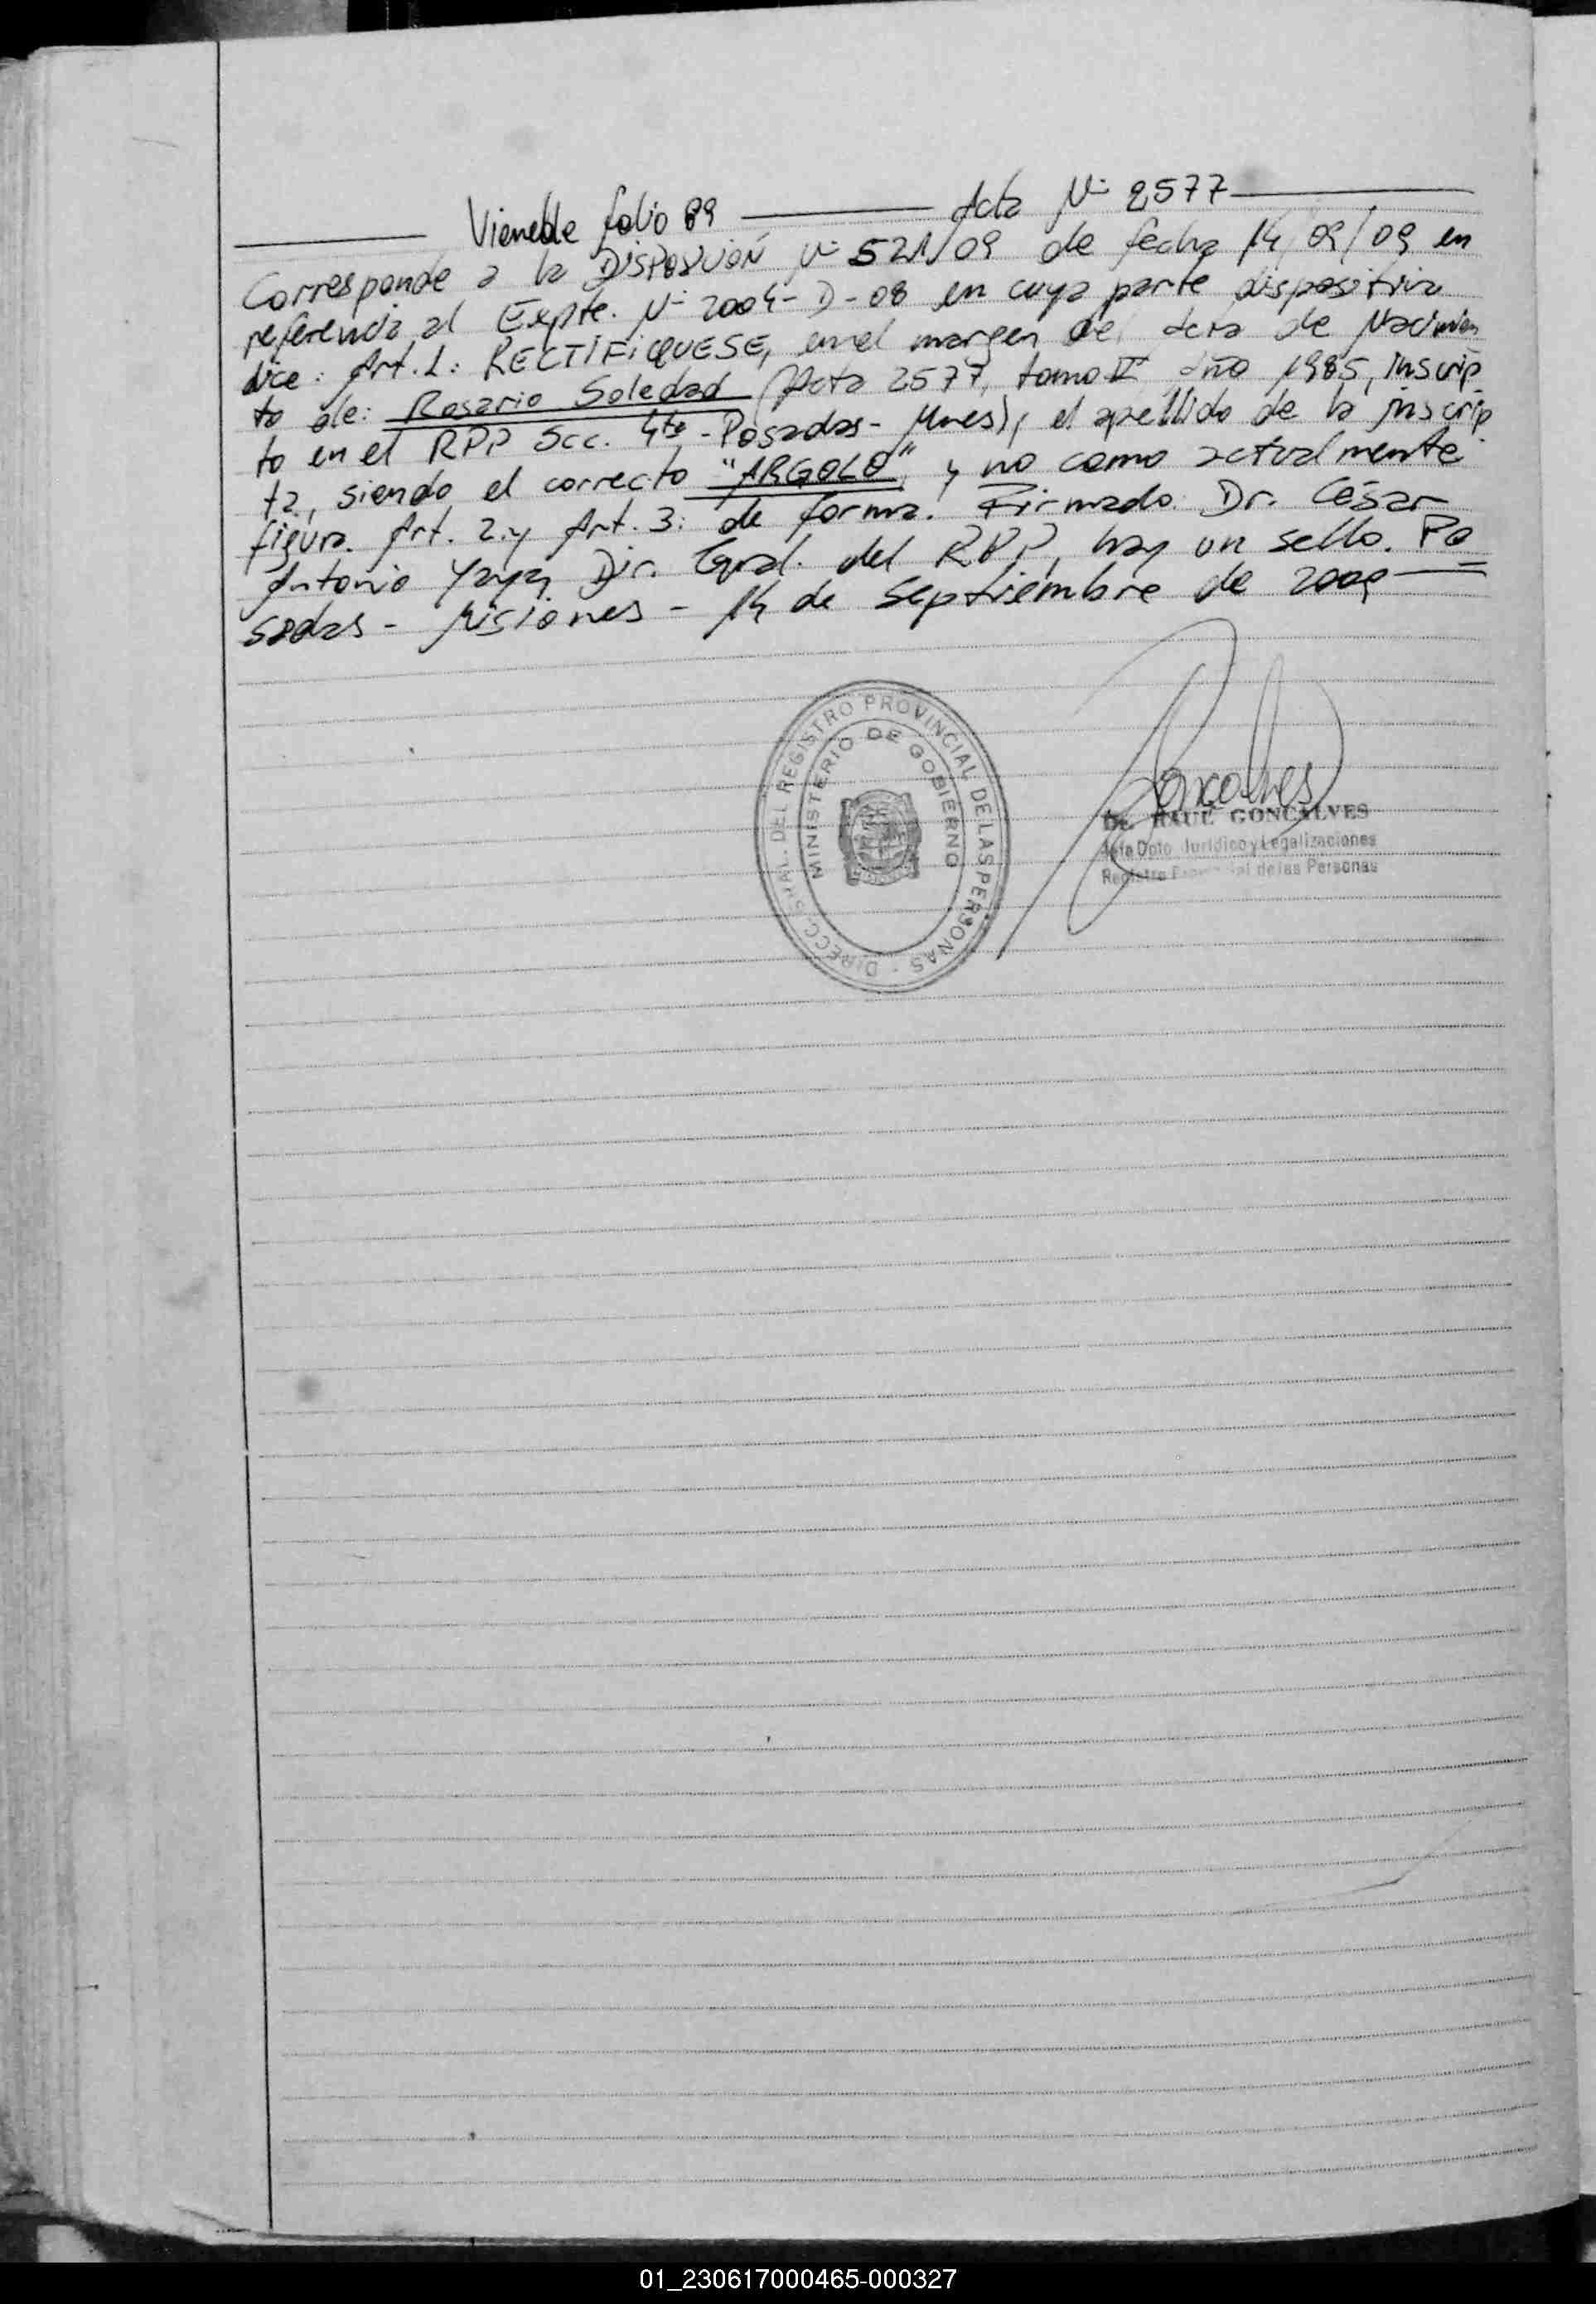 Viene de folio 89 Acta Nº 2577
Corresponde a la DISPOSICIÓN Nº 521/09 de fecha 14/09/09 en
referencia al Expte. Nº 2004-D-08 en cuya parte dispositiva
dice: Art. 1: RECTIFIQUESE, en el margen del acta de Nacimien
to de: Rosario Soledad (Acta 2577, tomo año 1985, inscrip
to en el RPP Scc. 4ta - Posadas - Mnes), el apellido de la inscrip
ta, siendo el correcto "ARGOLO", y no como actualmente
figura. Art. 2 y Art. 3: de forma. Firmado: Dr. César
Antonio Yaya, Dir. Gral. del RPP, hay un sello. Po
sadas - Misiones - 14 de Septiembre de 2009
DIRECC. GRAL. DEL REGISTRO PROVINCIAL DE LAS PERSONAS
MINISTERIO DE GOBIERNO
Goncalves
Dr. RAUL GONCALVES
Jefe Dpto Jurídico y Legalizaciones
Registro Provincial de las Personas
01_230617000465-000327